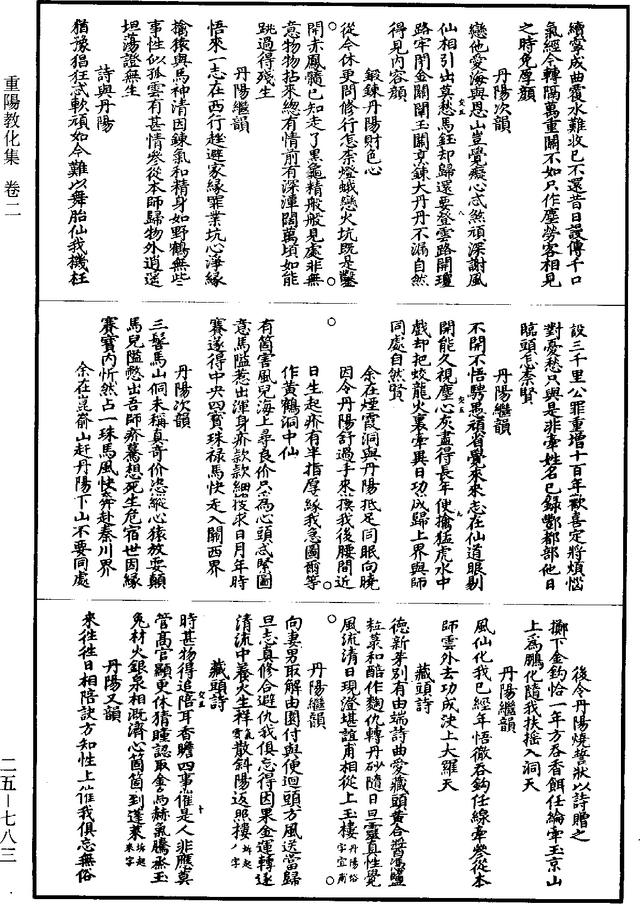 重陽教化集 卷二
二五—七八三
續寧成曲覆水難收已不還昔日謾傳千口
氣經今轉隔萬重關不如只作塵勞客相見
之時免厚顏
丹陽次韻
戀他愛海與恩山豈覺癡心忒煞頑深謝風
仙相引出莫愁馬鈺却歸還要登雲路開瓊
路牢閉金關闡玉關烹鍊大丹丹不漏自然
得見內容顏
鍛鍊丹陽財色心
從今休更問修行怎柰燈蛾戀火坑既是鑿
開赤鳳髓已知走了黑龜精般般見處非無
意物物拈來總有情前有深渾闊萬頃如能
跳過得殘生
丹陽繼韻
悟來一志在西行趓避家緣罪業坑心淨緣
擒猿與馬神清因鍊氣和精身如野鶴無些
事性似孤雲有甚情參從本師歸物外逍遙
坦蕩證無生
詩與丹陽
猶豫猖狂忒軟頑如今難以舞胎仙我機枉
設三千里公罪重增十百年歡喜定將煩惱
對憂愁只與是非牽姓名已錄酆都部他日
臨頭怎柰賢
丹陽繼韻
不開不悟騁馬頑省覺來來志在仙道眼剔
開能久視塵心灰盡得長年便擒猛虎水中
戲却把蛟龍火裏牽異日功成歸上界與師
同處自然賢
余在煙霞洞與丹陽抵足同眠向曉
因令丹陽舒過手來揍我後腰間近
日生起疥有半指厚緣我急圖爾等
作黃鶴洞中仙
有箇害風兒海上尋良價只為心頭忒緊圖
意馬隘惹出渾身疥款款細披求日月年時
賽遂得中央四寶珠祿馬快走入關西界
丹陽次韻
三髻馬山侗未稱真奇价恣縱心猿放耍顛
馬兒隘憋出吾師疥驀想死生危宿世因緣
賽寶內忻然占一珠馬風快奔赴秦川界
余在崑嵛山赶丹陽下山不要同處
後令丹陽燒誓狀以詩贈之
擲下金鈎恰一年方吞香餌任綸牽玉京山
上為鵬化隨我扶搖入洞天
丹陽繼韻
風仙化我已經年悟徹吞鈎任線牽參從本
師雲外去功成決上大羅天
藏頭詩
德新來別有由端詩曲愛藏頭黃合醬馮鹽
粒菓和酷作麯仇轉丹砂隨日旦靈真性覺
風流清日現澄堪誼甫相從上玉樓丹陽俗字宜甫
丹陽繼韻
向妻男取解由圉付與便迴頭方風送當歸
旦志真修合避仇我俱忘得因果金運轉遂
清流中養火生祥散斜陽返照樓拆起丿字
藏頭詩
時甚物得追陪耳香瞻四事催是人非應莫
管高官顯更休猜瞳認取舍為赫氣騰烝玉
兔材火銀泉相溉濟心箇箇到蓬萊拆起來字
丹陽又韻
來往往日相陪訣方知性上催我俱忘無俗